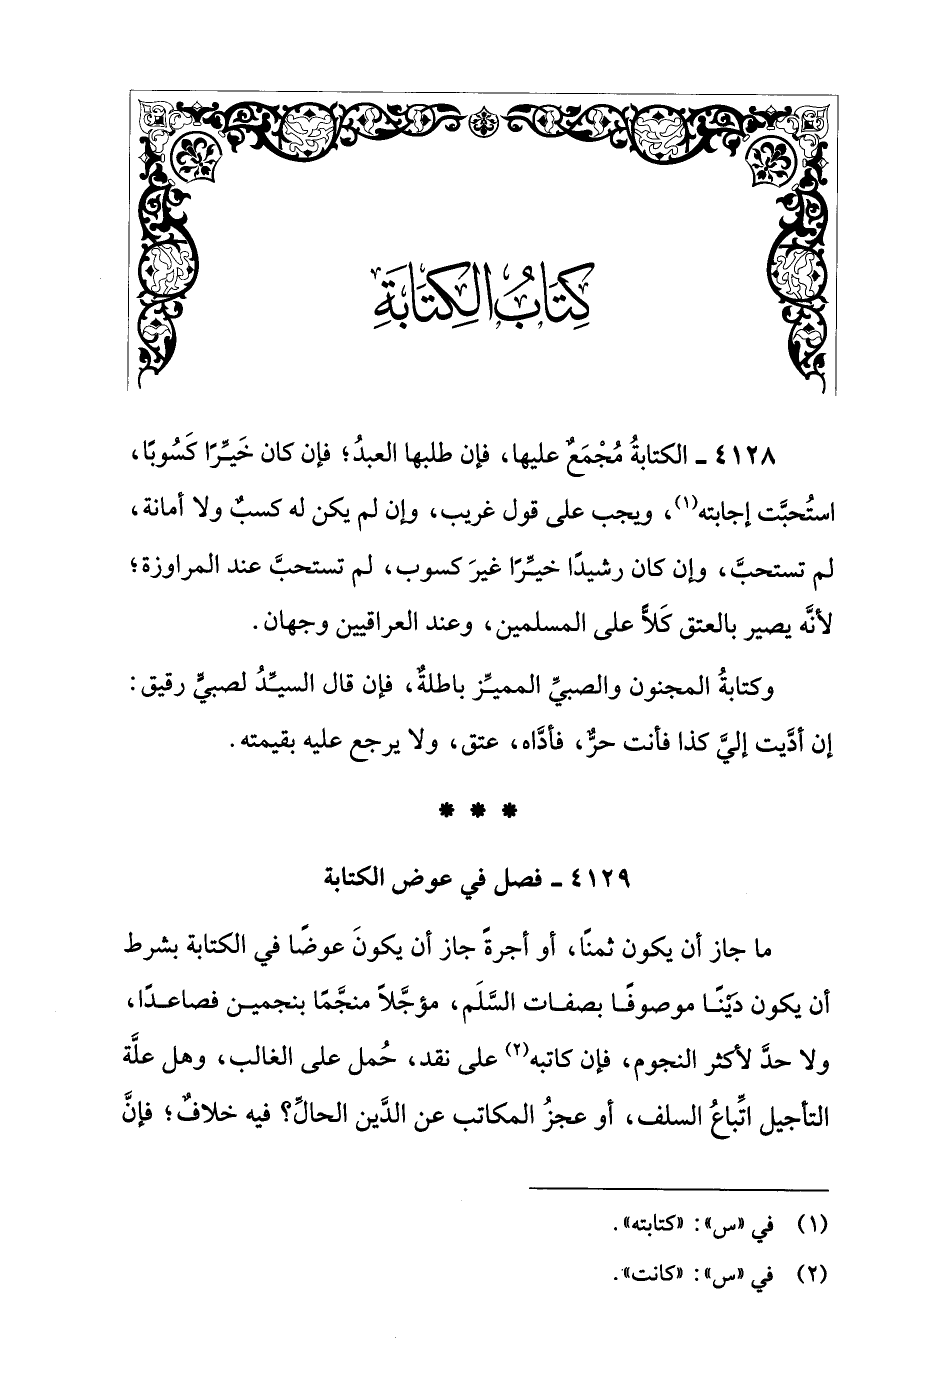 كِتَابُ الكِتَابَةِ
٤١٢٨ ـ الكتابةُ مُجْمَعٌ عليها، فإن طلبها العبدُ؛ فإن كان خَيِّرًا كَسُوبًا،
استُحبَّت إجابته(١)، ويجب على قول غريب، وإن لم يكن له كسبٌ ولا أمانة،
لم تستحبَّ، وإن كان رشيدًا خيِّرًا غيرَ كسوب، لم تستحبَّ عند المراوزة؛
لأنَّه يصير بالعتق كَلًّا على المسلمين، وعند العراقيين وجهان.
وكتابةُ المجنون والصبيِّ المميِّز باطلةٌ، فإن قال السيِّدُ لصبيٍّ رقيق:
إن أدَّيت إليَّ كذا فأنت حرٌّ، فأدَّاه، عتق، ولا يرجع عليه بقيمته.
* * *
٤١٢٩ ـ فصل في عوض الكتابة
ما جاز أن يكون ثمنًا، أو أجرةً جاز أن يكونَ عوضًا في الكتابة بشرط
أن يكون دَيْنًا موصوفًا بصفات السَّلَم، مؤجَّلاً منجَّمًا بنجمين فصاعدًا،
ولا حدَّ لأكثر النجوم، فإن كاتبه(٢) على نقد، حُمل على الغالب، وهل علَّة
التأجيل اتِّباعُ السلف، أو عجزُ المكاتب عن الدَّين الحالِّ؟ فيه خلافٌ؛ فإنَّ
(١) في «س»: «كتابته».
(٢) في «س»: «كانت».